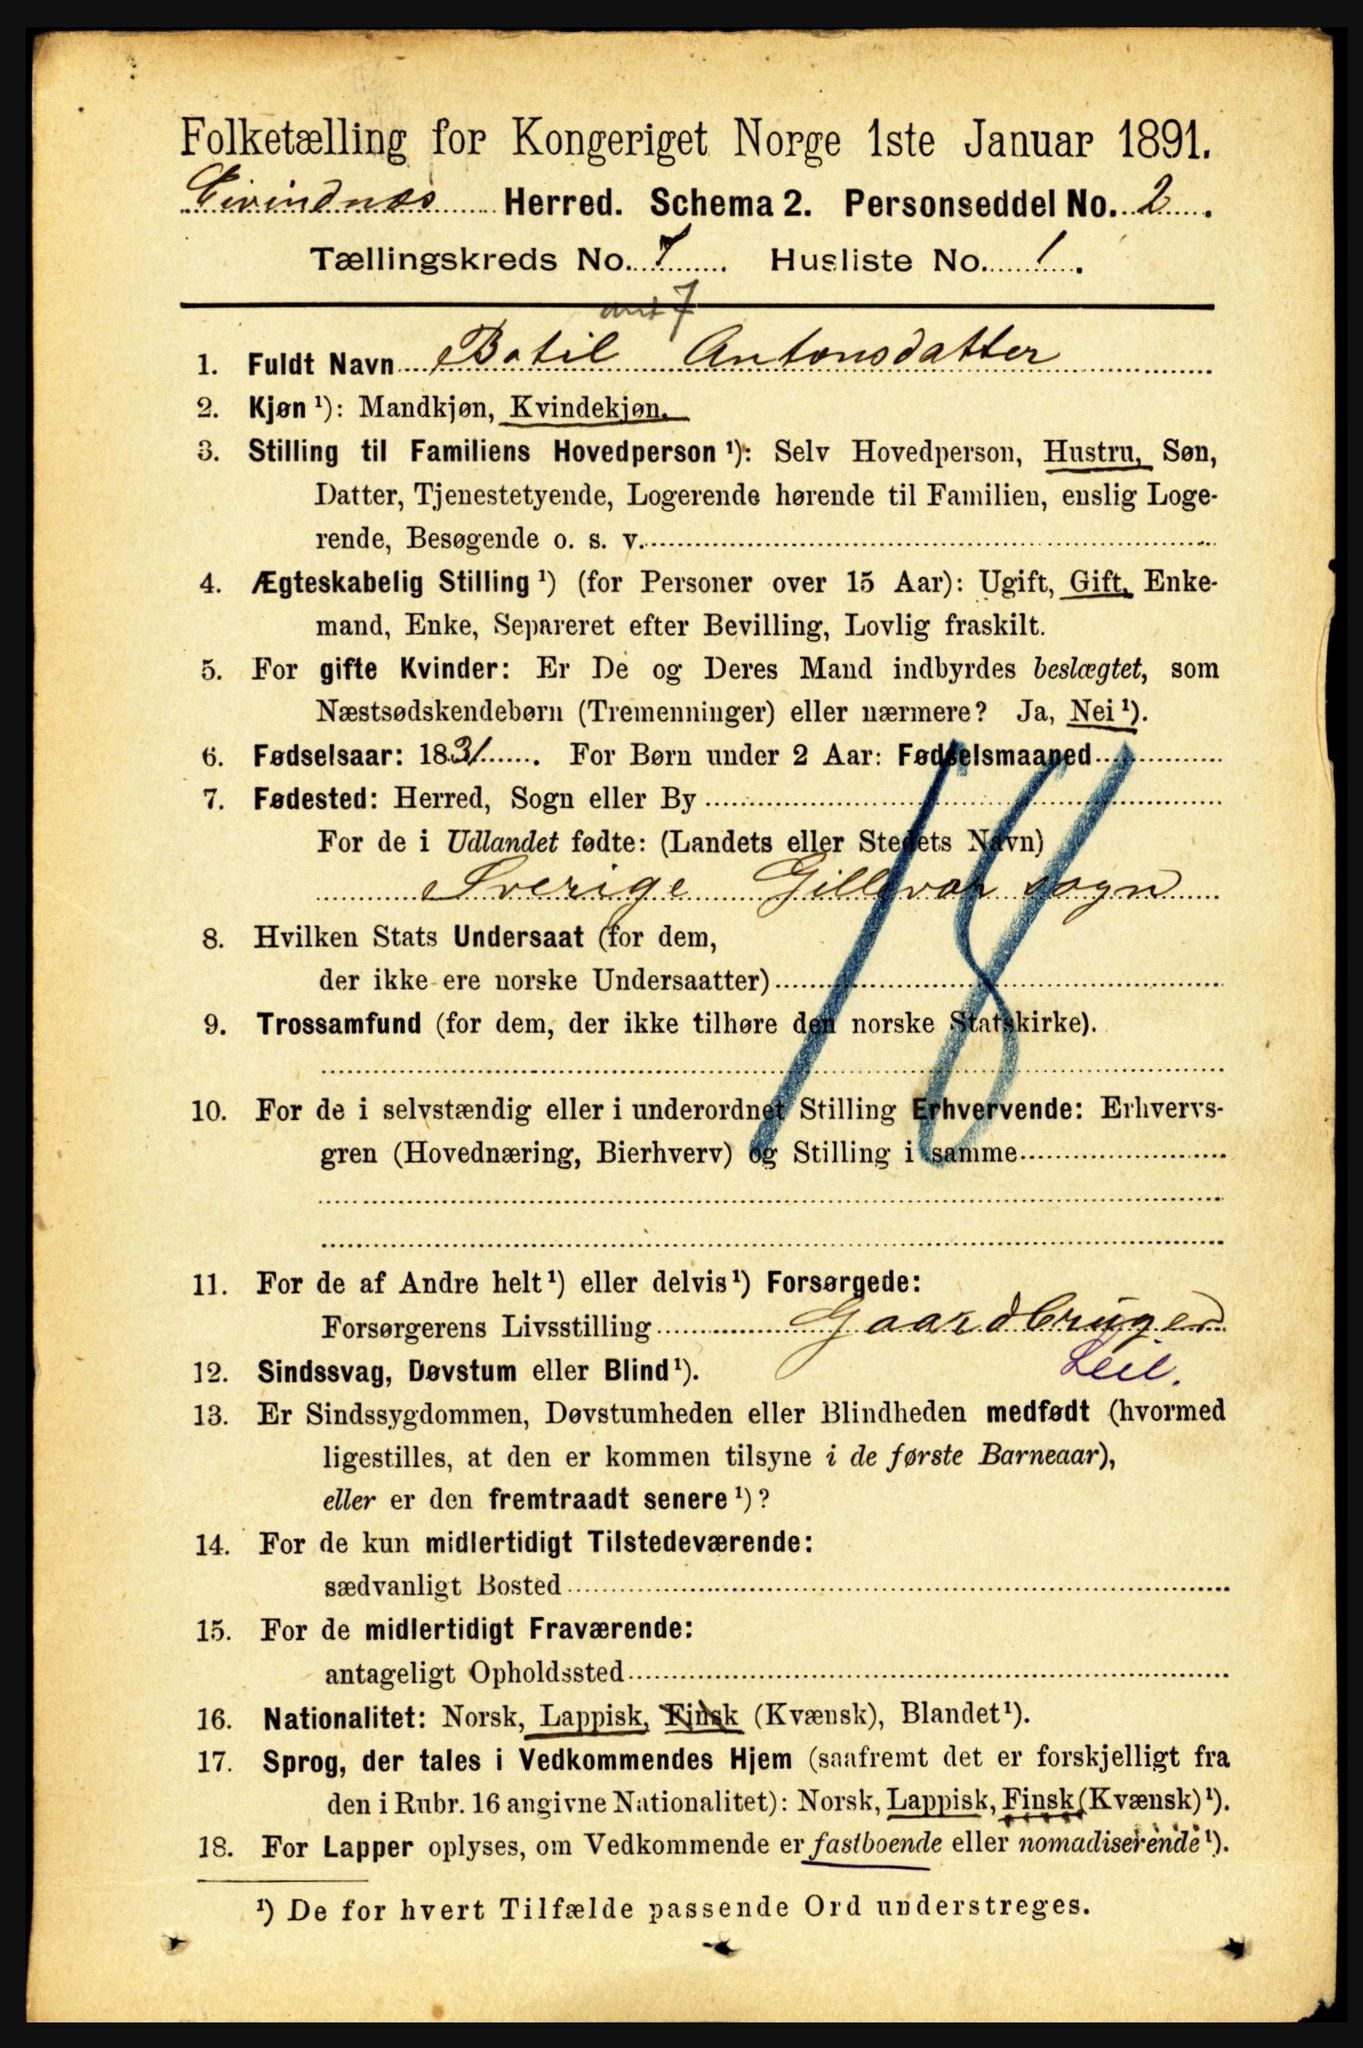 Folketælling for Kongeriget Norge 1ste Januar 1891.
Herred. Schema 2. Personseddel No. 2.
Tællingskreds No. 7 Husliste No. 1.
7
1. Fuldt Navn Botil Antonsdatter
2. Kjøn ¹): Mandkjøn, Kvindekjøn.
3. Stilling til Familiens Hovedperson ¹): Selv Hovedperson, Hustru, Søn,
Datter, Tjenestetyende, Logerende hørende til Familien, enslig Loge-
rende, Besøgende o. s. v.
4. Ægteskabelig Stilling ¹) (for Personer over 15 Aar): Ugift, Gift, Enke-
mand, Enke, Separeret efter Bevilling, Lovlig fraskilt.
5. For gifte Kvinder: Er De og Deres Mand indbyrdes beslægtet, som
Næstsødskendebørn (Tremenninger) eller nærmere? Ja, Nei ¹).
6. Fødselsaar: 1831. For Børn under 2 Aar: Fødselsmaaned
7. Fødested: Herred, Sogn eller By
For de i Udlandet fødte: (Landets eller Stedets Navn)
Sverige Gillevar sogn
8. Hvilken Stats Undersaat (for dem,
der ikke ere norske Undersaatter)
9. Trossamfund (for dem, der ikke tilhøre den norske Statskirke).
18
10. For de i selvstændig eller i underordnet Stilling Erhvervende: Erhvervs-
gren (Hovednæring, Bierhverv) og Stilling i samme
11. For de af Andre helt ¹) eller delvis ¹) Forsørgede:
Forsørgerens Livsstilling Gaardbruger
Leil.
12. Sindssvag, Døvstum eller Blind ¹).
13. Er Sindssygdommen, Døvstumheden eller Blindheden medfødt (hvormed
ligestilles, at den er kommen tilsyne i de første Barneaar),
eller er den fremtraadt senere ¹)?
14. For de kun midlertidigt Tilstedeværende:
sædvanligt Bosted
15. For de midlertidigt Fraværende:
antageligt Opholdssted
16. Nationalitet: Norsk, Lappisk, Finsk (Kvænsk), Blandet ¹).
17. Sprog, der tales i Vedkommendes Hjem (saafremt det er forskjelligt fra
den i Rubr. 16 angivne Nationalitet): Norsk, Lappisk, Finsk (Kvænsk) ¹).
18. For Lapper oplyses, om Vedkommende er fastboende eller nomadiserende ¹).
¹) De for hvert Tilfælde passende Ord understreges.